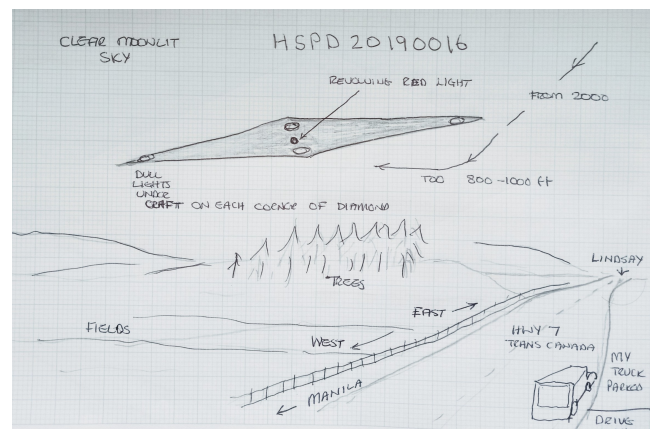 CLEAR MOONLIT
SKY
HSPD 20190016
REVOLVING RED LIGHT
FROM 2000
TOO 800-1000 ft
DULL
LIGHTS
UNDER
CRAFT ON EACH CORNER OF DIAMOND
TREES
LINDSAY
EAST
FIELDS
WEST
HWY 7
TRANS CANADA
MANILA
MY
TRUCK
PARKED
DRIVE